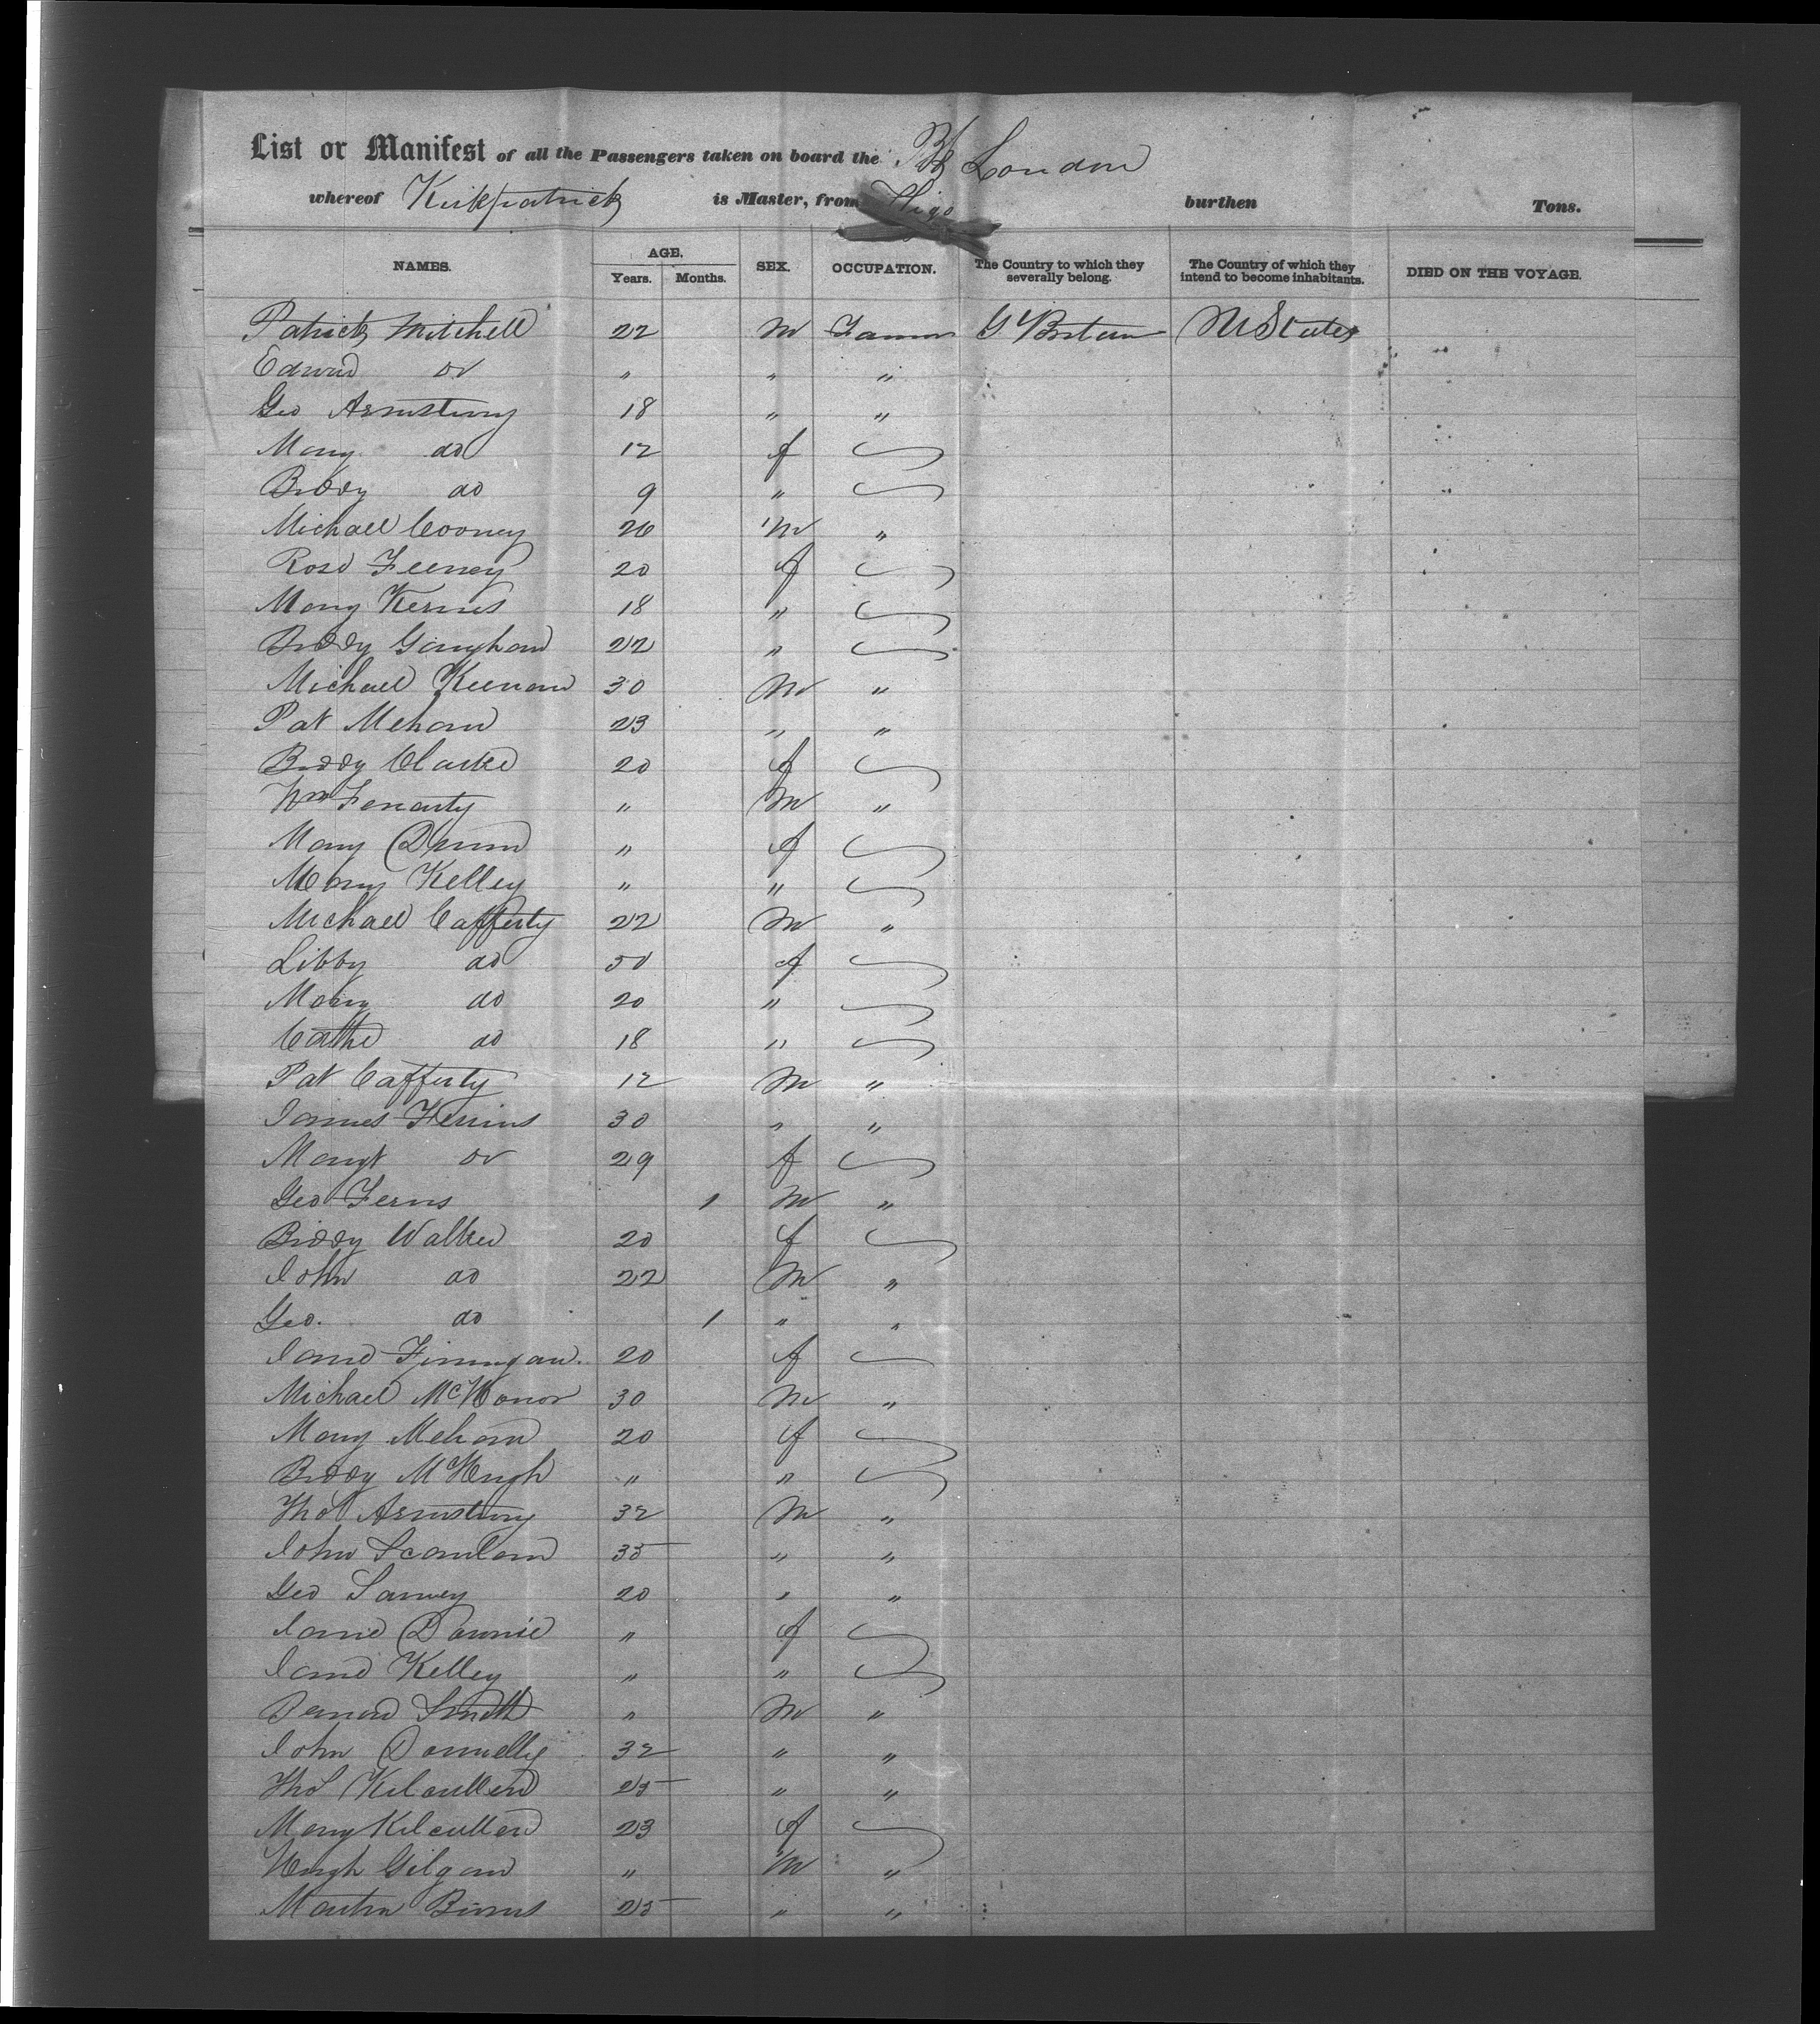 List or Manifest of all the Passengers taken on board the Bk London
whereof Kirkpatrick is Master, from Sligo burthen Tons.
NAMES. AGE. Years. Months. SEX. OCCUPATION. The Country to which they severally belong. The Country of which they intend to become inhabitants. DIED ON THE VOYAGE.
Patrick Mitchell 22 M Farmer Gt Britain U States
Edward do " " "
Geo Armstrong 18 " "
Mary do 12 f
Biddy do 9 "
Michael Cooney 26 M "
Rose Feeney 20 f
Mary Kerins 18 "
Biddy Gaughan 22 "
Michael Keenan 30 M "
Pat Mehan 23 " "
Biddy Clarke 20 f
Wm Fenarty " M "
Mary Dunn " f
Mary Kelley " "
Michael Cafferty 22 M "
Libby do 50 f
Mary do 20 "
Cathe do 18 "
Pat Cafferty 12 M "
James Ferins 30 " "
Margt do 29 f
Geo Ferns 1 M "
Biddy Walker 20 f
John do 22 M "
Geo. do 1 " "
Jane Finnigan. 20 f
Michael McHonor 30 M "
Mary Mehan 20 f
Biddy McHugh " "
Thos Armstrong 32 M "
John Scanlan 35 " "
Geo 20 " "
Jane Downie " f
Jane Kelley " "
Bernard Smith " M "
John Donnelly 32 " "
Thos Kilcullen 25 " "
Mary Kilcullen 23 f
Hugh Gilgan " M "
Martin Binns 25 " "